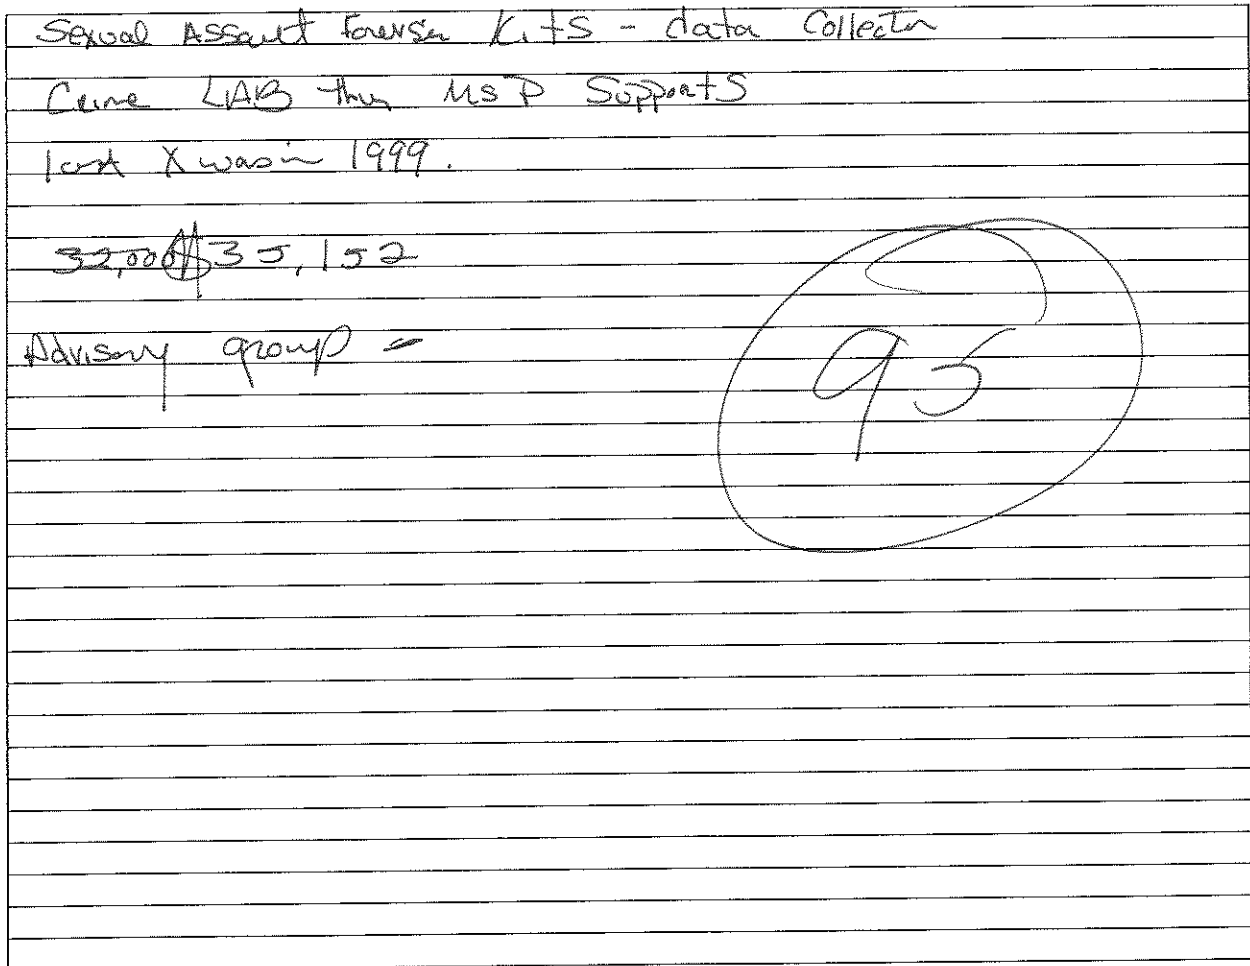 Sexual Assault Forensic Kits - data Collection
Crime LAB thru MSP Supports
last X was in 1999.
32,000 $35,152
Advisory group =
95